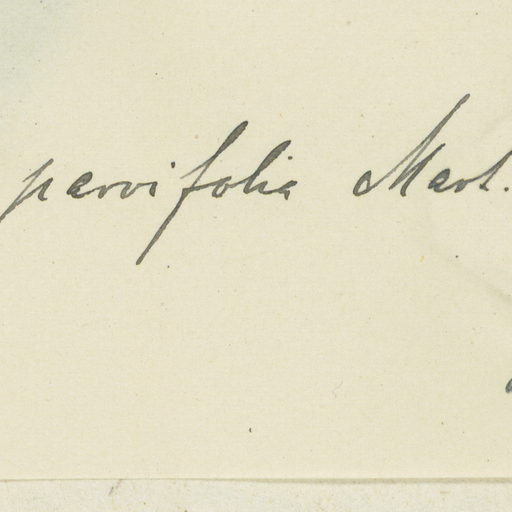 parvifolia Mart.